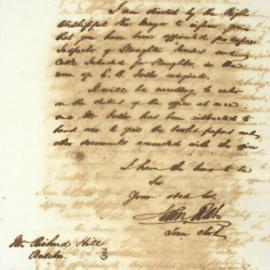 I am directed by the Right
Worshipful the Mayor to inform you
that you have been appointed
Inspector of Slaughter Houses and
Cattle Intended for Slaughter, in the
room of E. A. resigned.
It will be necessary to enter
on the duties of the office at once
and Mr has been instructed to
hand over to you the books papers and
other documents connected with the office
I have the honor to be
Sir
Your obed Ser
Town Clerk
Mr Richard Hill
Butcher